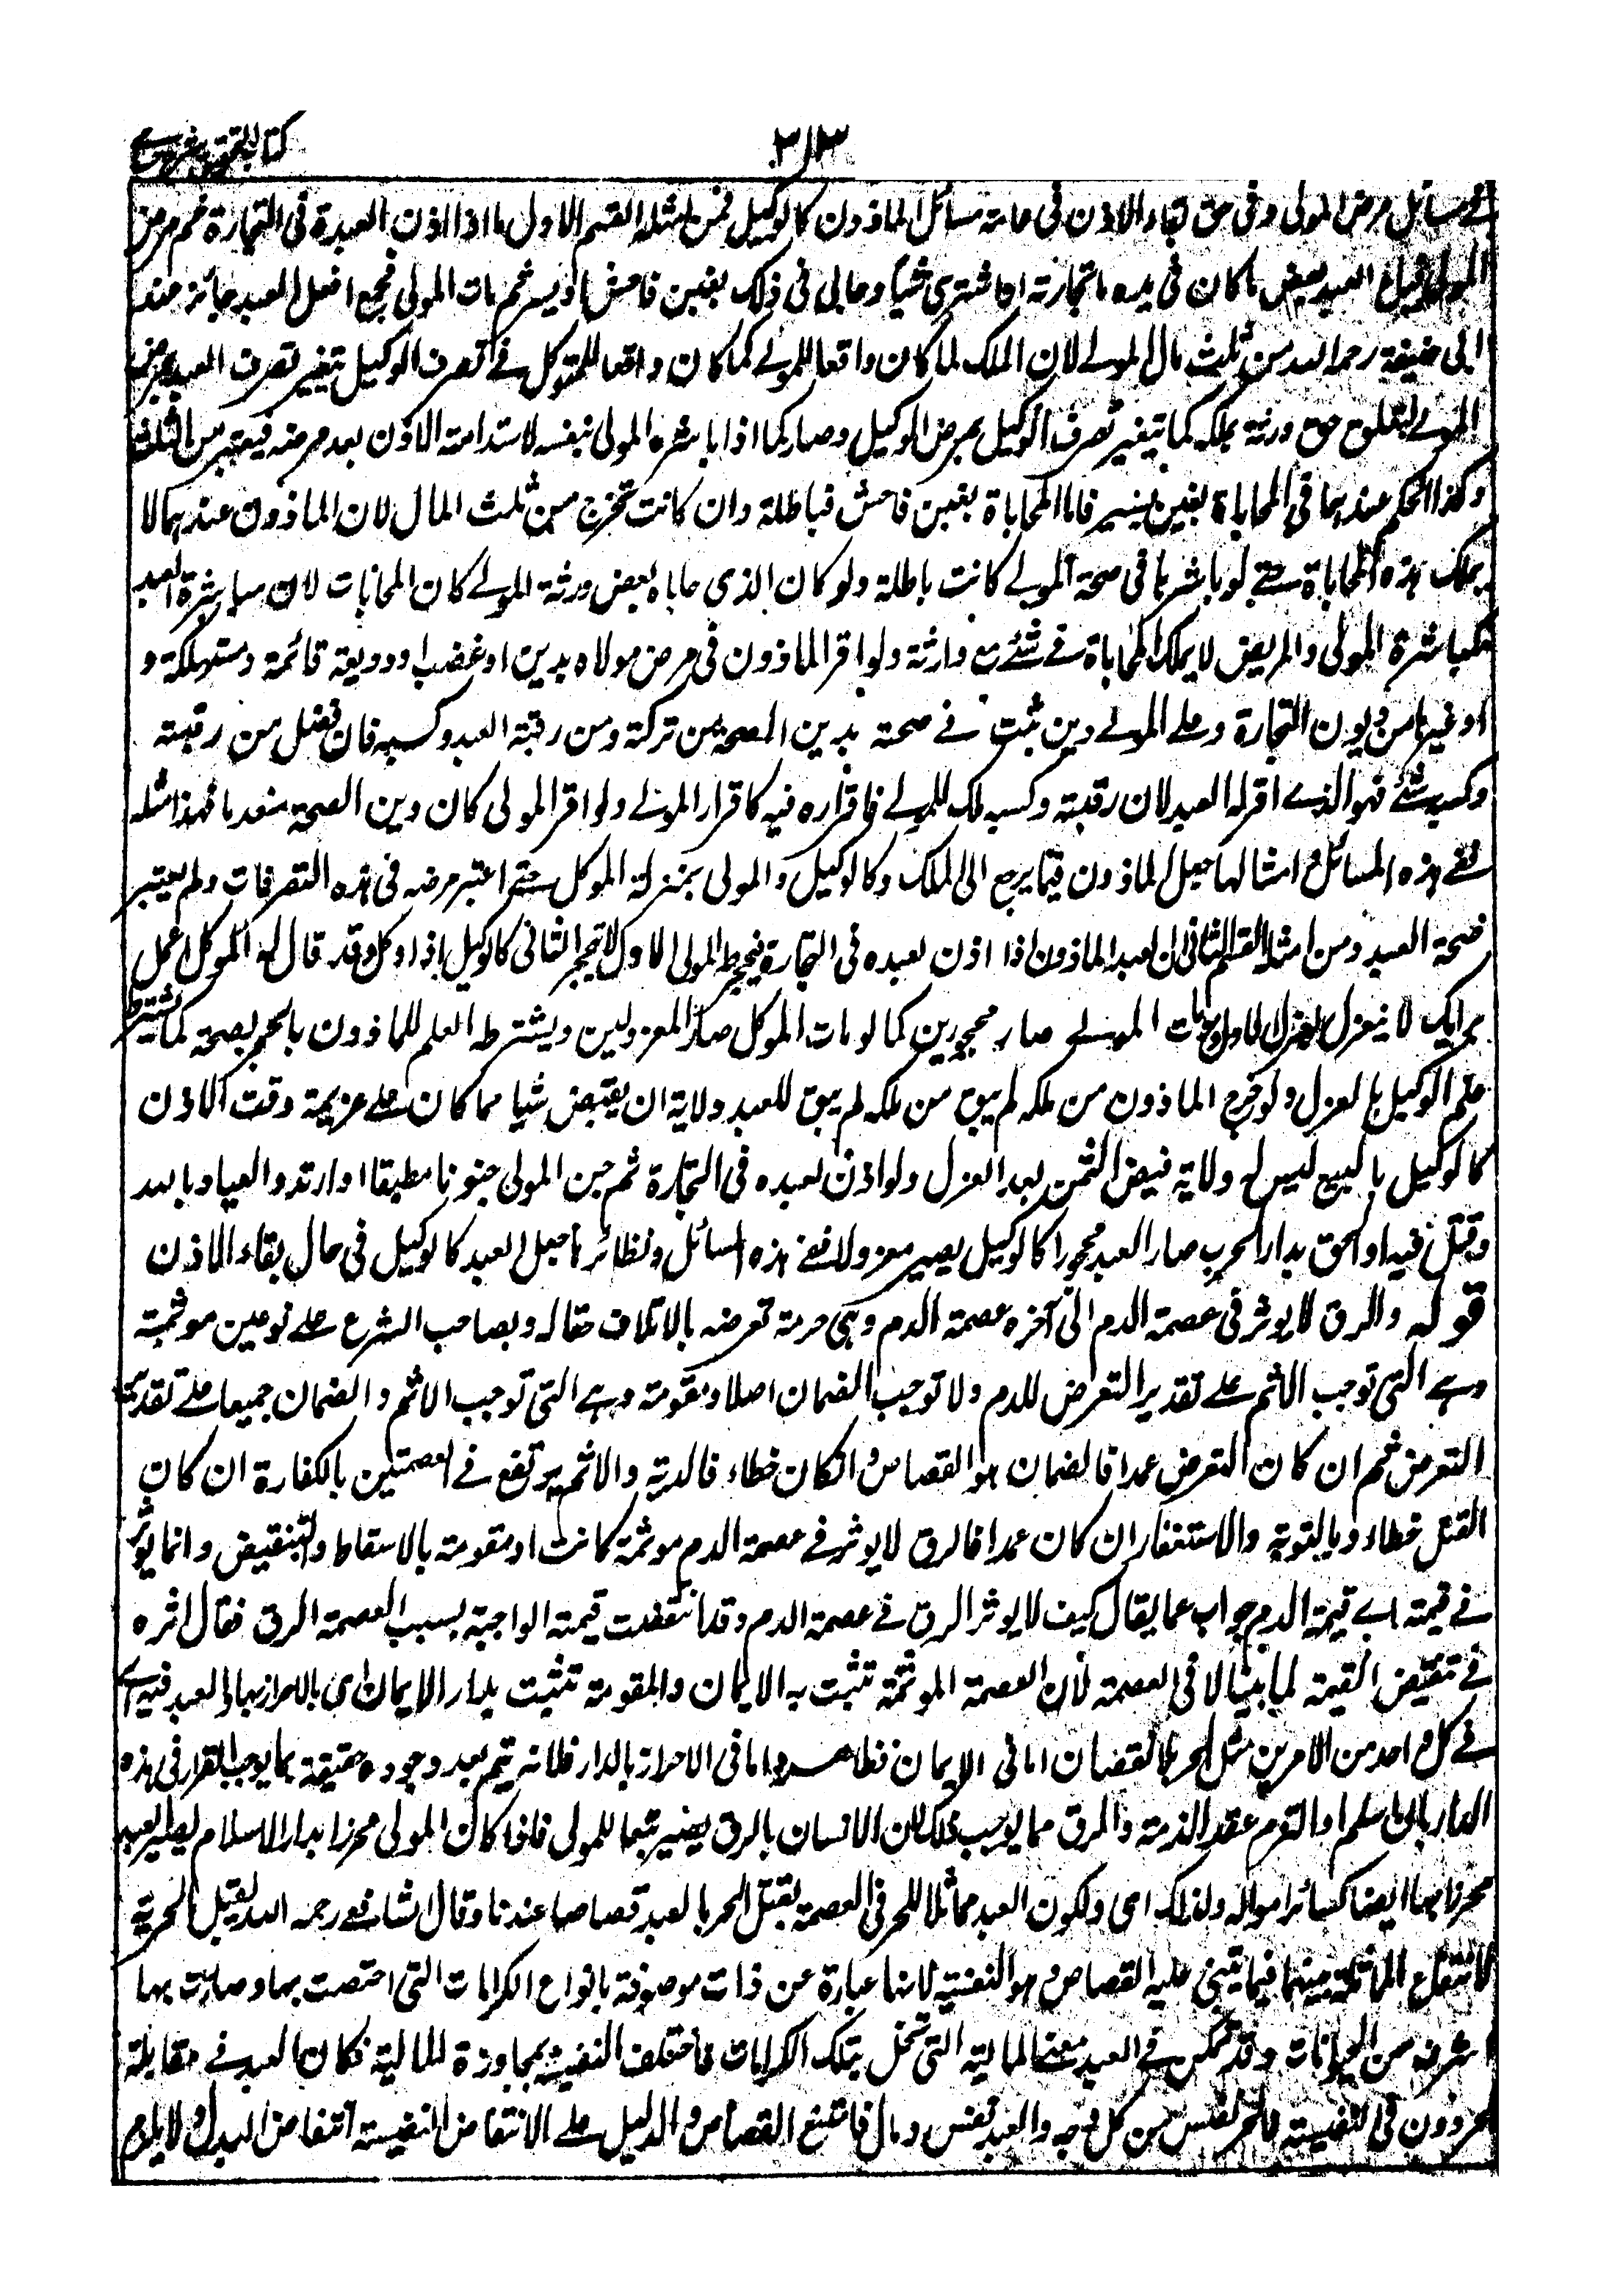 كتاب التحقيق شرح
٣١٣
فى مسائل مرض المولى وفى حق بقاء الاذن فى عامة مسائل الماذون كالوكيل فمن امثلة القسم الاول ما اذا اذن العبدة فى التجارة ثم مرض
المولى فباع العبد بعض ما كان فى يده من تجارته او اشترى شيأ وحابى فى ذلك بغبن فاحش او يسير ثم مات المولى فجميع ما فعل العبد جائز عند
ابى حنيفة رحمه الله من ثلث مال المولى لان الملك لما كان واقعا للمولى كما كان واقعا للموكل فى تصرف الوكيل يتغير تصرف العبد بمرض
المولى لتعلق حق ورثته بملكه كما يتغير تصرف الوكيل بمرض الموكيل وصار كما اذا باشره المولى بنفسه لاستدامة الاذن بعد مرضه فيعتبر من الثلث
وكذا الحكم عندهما فى المحاباة بغبن يسير فاما المحاباة بغبن فاحش فباطلة وان كانت تخرج من ثلث المال لان الماذون عندهما لا
يملك هذه المحاباة حتى لو باشرها فى صحة المولى كانت باطلة ولو كان الذى حاباه بعض ورثة المولى كان المحابات لان مباشرة العبد
كمباشرة المولى والمريض لا يملك المحاباة فى شئ مع وارثه ولو اقر الماذون فى مرض مولاه بدين او غصب او وديعة قائمة ومستهلكة و
او غيرها من ديون التجارة وعلى المولى دين ثبت فى صحته بدين الصحة من تركته ومن رقبة العبد وكسبه فان فضل من رقبته
وكسبه شئ فهو الذى اقر له العبد لان رقبته وكسبه ملك للمولى فاقراره فيه كاقرار المولى ولو اقر المولى كان دين الصحة مقدما فهذا مثله
ففى هذه المسائل وامثالها جعل الماذون فيما يرجع الى الملك وكالوكيل والمولى بمنزلة الموكل حتى اعتبر مرضه فى هذه التصرفات ولم يعتبر
صحة العبد ومن امثلة القسم الثانى ان العبد الماذون اذا اذن لعبده فى التجارة فحجر المولى الاول لا ينحجر الثانى كالوكيل اذا وكل وقد قال له الموكل اعمل
برايك لا ينعزل بعزل الاول ولو مات المولى صار محجورين كما لو مات الموكل صار المعزولين ويشترط العلم للماذون بالحجر بصحته كما يشترط
علم الوكيل بالعزل ولو خرج الماذون من ملكه لم يبق من ملكه لم يبق للعبد ولاية ان يقبض شيا مما كان على عزيمة وقت الاذن
كالوكيل بالبيع ليس له ولاية قبض الثمن بعد العزل ولو اذن لعبده فى التجارة ثم جن المولى جنونا مطبقا او ارتد والعياذ بالله
وقتل فيه او لحق بدار الحرب صار العبد محجورا كالوكيل يصير معزولا ففى هذه المسائل ونظائرها جعل العبد كالوكيل فى حال بقاء الاذن
قوله والرق لا يوثر فى عصمة الدم الى آخره عصمة الدم وهى حرمة تعرضه بالاتلاف حقا له ولصاحب الشرع على نوعين موثمة
وهى التى توجب الاثم على تقدير التعرض للدم ولا توجب الضمان اصلا ومقومة وهى التى توجب الاثم والضمان جميعا على تقدير
التعرض ثم ان كان التعرض عمدا فالضمان هو القصاص وانكان خطاء فالدية والاثم يرتفع فى العصمتين بالكفارة ان كان
القتل خطاء وبالتوبة والاستغفار ان كان عمدا فالرق لا يوثر فى عصمة الدم موثمة كانت او مقومة بالاسقاط والتنقيض وانما يوثر
فى قيمته اى قيمة الدم جواب عما يقال كيف لا يوثر الرق فى عصمة الدم وقد انتقضت قيمته الواجبة بسبب العصمة الرق فقال اثره
فى تنقيض القيمة لما بينا لا فى العصمة لان العصمة الموثمة تثبت به الايمان والمقومة تثبت بدار الايمان اى بالاحراز بها والعبد فيه اى
فى كل واحد من الامرين مثل الحر بلا نقصان اما فى الايمان فظاهر واما فى الاحراز بالدار فلانه يتم بعد وجوده حقيقة بما يوجب القرار فى هذه
الدار بان اسلم او التزم عقد الذمة والرق مما يوجب ذلك لان الانسان بالرق يصير تبعا للمولى فاذا كان المولى محرزا بدار الاسلام يصير العبد
محرزا بها ايضا كسائر امواله ولذلك اى ولكون العبد مماثلا للحر فى العصمة يقتل الحر بالعبد قصاصا عندنا وقال الشافعى رحمه الله لا يقتل الحر به
لانتفاع المماثلة بينهما فيما يبتنى عليه القصاص وهو النفسية لانها عبارة عن ذات موصوفة بانواع الكرامات التى اختصت بها وصارت بها
اشرف من الحيوانات وقد تمكن فى العبد معنى المالية التى تخل بتلك الكرامات فاختلف النفسية بمجاورة المالية فكان العبد فى مقابلة
الحر دون فى النفسية فالحر نفس من كل وجه والعبد نفس ومال فامتنع القصاص والدليل على الانتقاض النفسية انتقاض البدل ولا يلزم